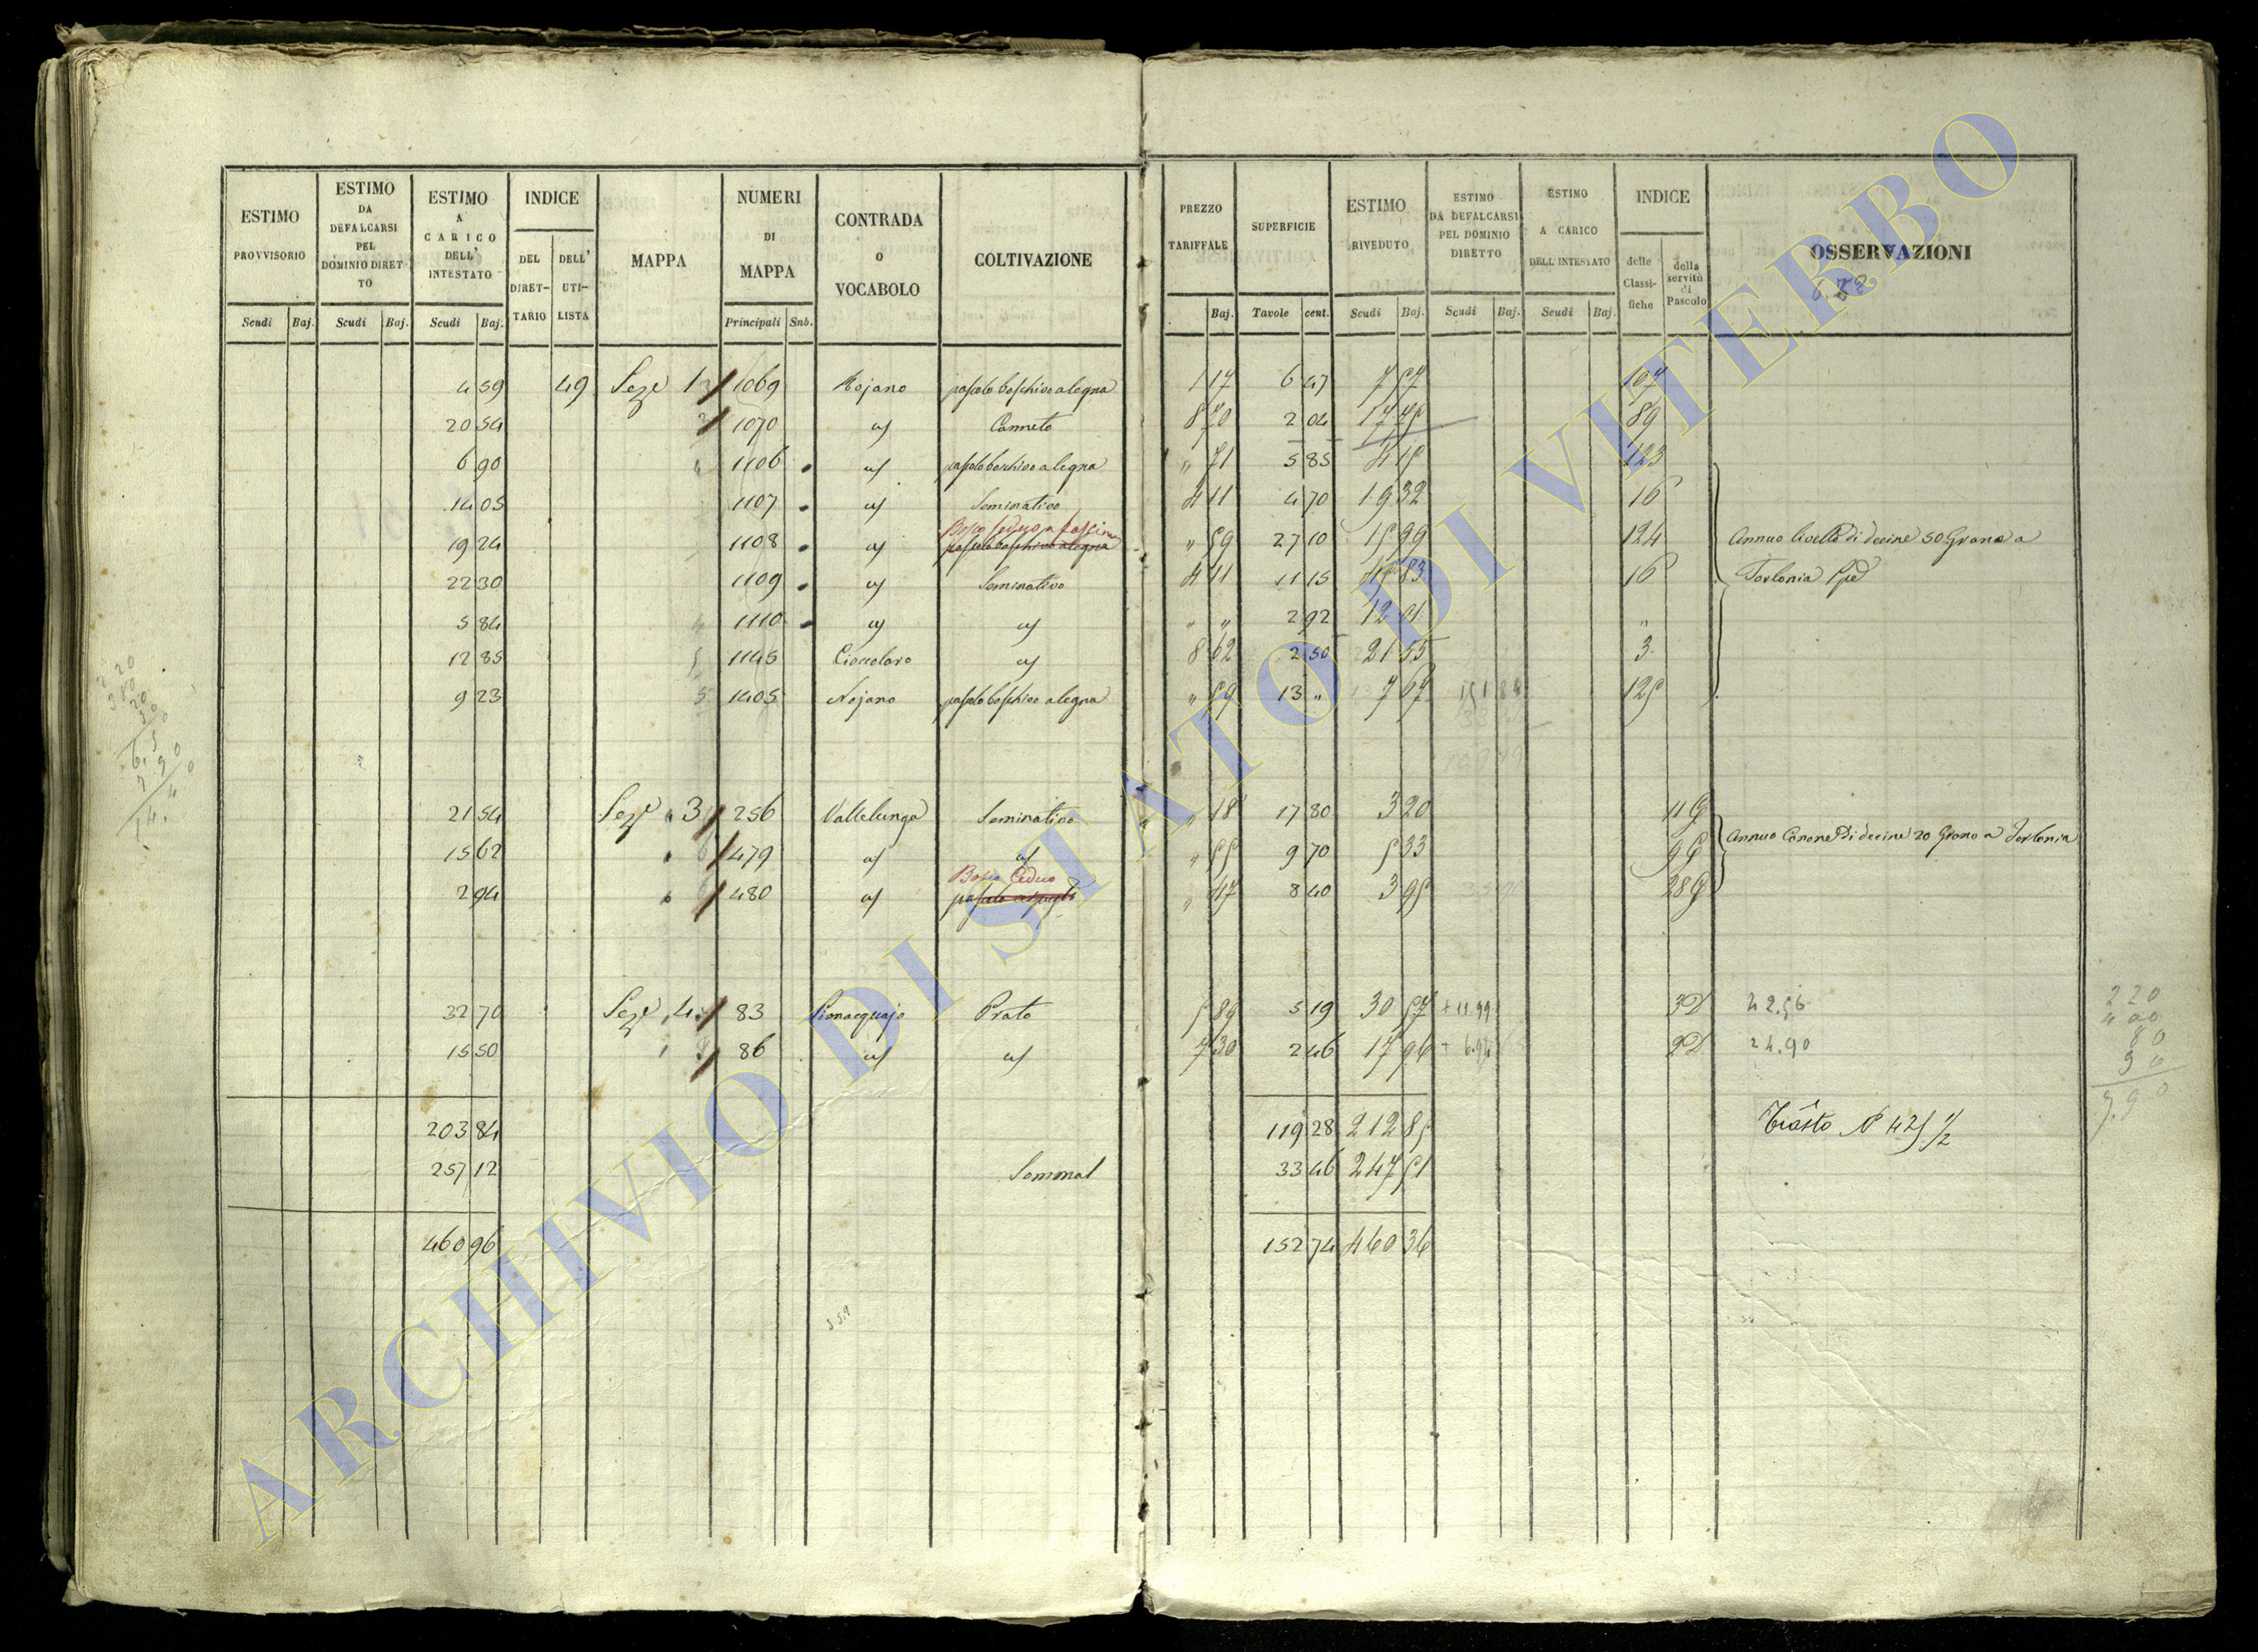 ESTIMO PROVVISORIO | ESTIMO DA DEFALCARSI PEL DOMINIO DIRETTO | ESTIMO A CARICO DELL' INTESTATO | INDICE DEL DIRET-TARIO | DELL' UTI-LISTA | MAPPA | NUMERI DI MAPPA | CONTRADA O VOCABOLO | COLTIVAZIONE | PREZZO TARIFFALE | SUPERFICIE | ESTIMO RIVEDUTO | ESTIMO DA DEFALCARSI PEL DOMINIO DIRETTO | ESTIMO A CARICO DELL' INTESTATO | INDICE delle Classi-fiche | della servitù di Pascolo | OSSERVAZIONI
Scudi Baj. | Scudi Baj. | Scudi Baj. | Principali Snb. | Baj. | Tavole cent. | Scudi Baj. | Scudi Baj. | Scudi Baj.
4 59 | 49 | Seze 1 | 1069 | Rojano | pascolo boschivo a legna | 1 17 | 6 47 | 7 57 | 107
20 54 | 1070 | a/ | Canneto | 8 70 | 2 04 | 17 75 | 89
6 90 | 1106 | a/ | pascolo boschivo a legna | " 71 | 5 85 | 4 15 | 123
14 05 | 1107 | a/ | Seminativo | 4 11 | 4 70 | 19 32 | 16
Bosco Ceduo a fascine
19 24 | 1108 | a/ | pascolo boschivo a legna | " 59 | 27 10 | 15 99 | 124 | Annuo livello di decine 50 Grano a
22 30 | 1109 | a/ | Seminativo | 4 11 | 11 15 | 45 83 | 16 | Torlonia
5 84 | 1110 | a/ | a/ | " " | 2 92 | 12 01 | "
12 85 | 1145 | a/ | 8 62 | 2 50 | 21 55 | 3
9 23 | 5 | 1405 | Nojano | pascolo boschivo a legna | " 59 | 13 " | 7 67 | 125
21 54 | Seze 3 | 256 | Vallelunga | Seminativo | " 18 | 17 80 | 3 20 | 11 G
15 62 | 479 | a/ | a/ | " 55 | 9 70 | 5 33 | 9 G | Annuo Canone di decine 20 Grano a Torlonia
Bosco Ceduo
2 94 | 480 | a/ | pascolo | " 47 | 8 40 | 3 95 | 28 G
32 70 | Seze 4 | 83 | Pionacquajo | Prato | 5 89 | 5 19 | 30 57 | + 11.99 | 3D | 42.56
15 50 | 86 | a/ | a/ | 7 30 | 2 46 | 17 96 | + 6.94 | 2D | 24.90
203 84 | 119 28 | 212 85 | N 425 1/2
257 12 | Sommal | 33 46 | 247 51
460 96 | 152 74 | 460 36
220
400
80
90
ARCHIVIO DI STATO DI VITERBO